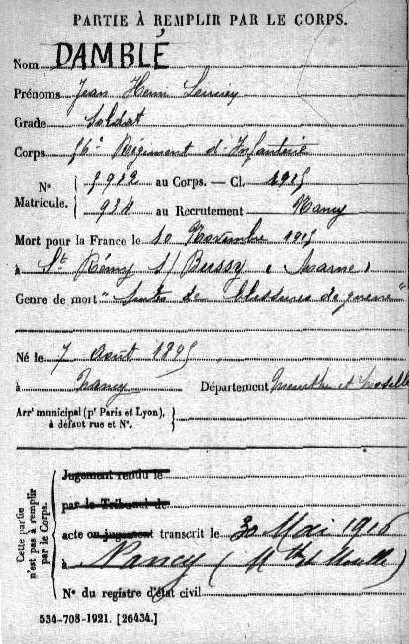 PARTIE À REMPLIR PAR LE CORPS.
Nom DAMBLÉ
Prénoms Jean Henri
Grade Soldat
Corps 56e Régiment d'Infanterie
N° Matricule. { 5982 au Corps. — Cl. 1915
934 au Recrutement Nancy
Mort pour la France le 10 Novembre 1915
à St Rémy s/ Bussy (Marne)
Genre de mort "Suites de blessures de guerre"
Né le 7 Août 1895
à Nancy Département Meurthe et Moselle
Arrt municipal (pr Paris et Lyon), à défaut rue et N°. }
Cette partie n'est pas à remplir par le Corps.
Jugement rendu le
par le Tribunal de
acte ou jugement transcrit le 30 Mai 1916
à Nancy (M the et Moselle)
N° du registre d'état civil
534-708-1921. [26434.]